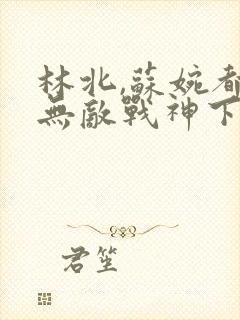 林北,蘇婉都
無敵戰神下
君笙